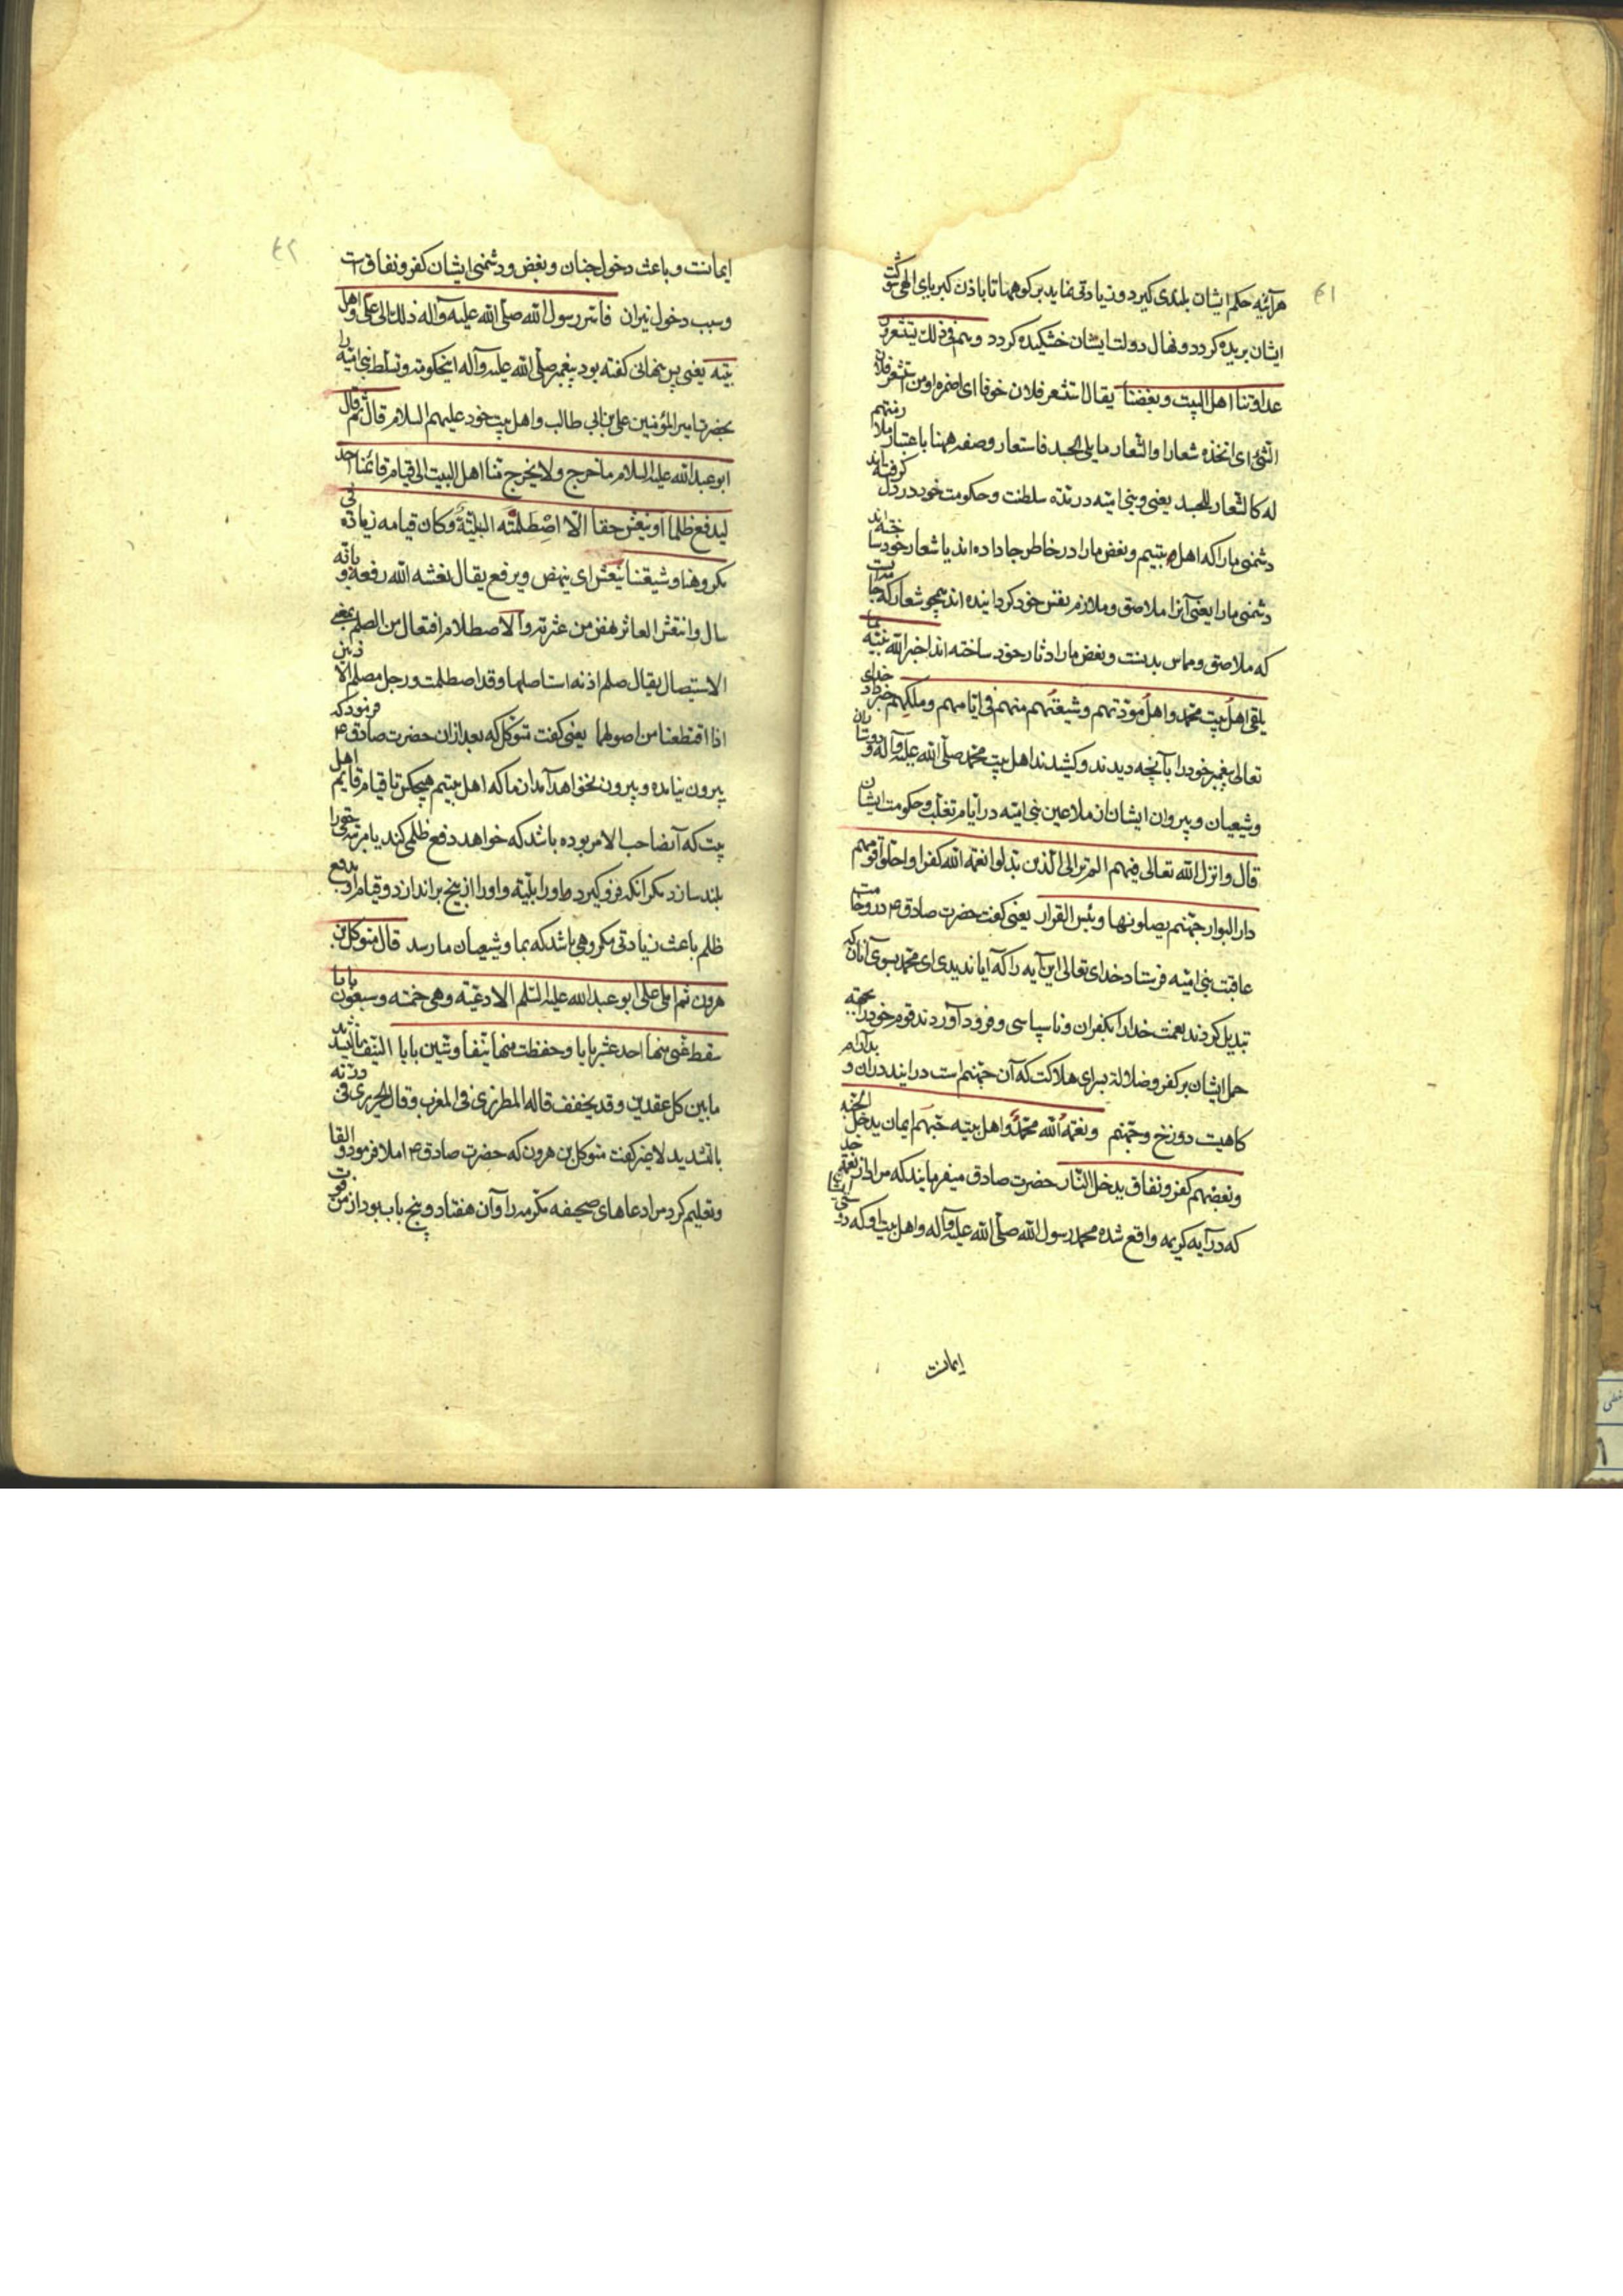 ٤١
هرآینه حکم ایشان بلندی کیرد و زیادتی نماید بر کوهها تا باذن کبریای الهی شوکت
ایشان بریده کردد و نهال دولت ایشان خشکیده کردد و هم فی ذلک یستشعرون
عداوتنا اهل البیت و بغضنا یقال استشعر فلان خوفا ای اضمره او من استشعر فلان
الشئ ای اتخذه شعارا والشعار ما یلی الجسد فاستعار وصفه ههنا باعتبار ملازمتهم
له کالشعار للجسد یعنی و بنی امیه در مدته سلطنت و حکومت خود در دل گرفته اند
دشمنی ما را که اهل بیتیم و بغض ما را در خاطر جا داده اند یا شعار خود ساخته اند
دشمنی ما را یعنی آنرا ملاصق و ملازم نفس خود کردانیده اند همچو شعار که جامه ایست
که ملاصق و مماس بدنست و بغض ما را دثار خود ساخته اند اخبر الله نبیه بما
یلقی اهل بیت محمد و اهل مودتهم و شیعتهم منهم فی ایامهم و ملکهم خبر داد خدای
تعالی پیغمبر خود را بآنچه دیدند و کشیدند اهل بیت محمد صلی الله علیه و آله و دوستان
و شیعیان و پیروان ایشان از ملاعین بنی امیه در ایام تغلب و حکومت ایشان
قال و انزل الله تعالی فیهم الم تر الی الذین بدلوا نعمة الله کفرا و احلوا قومهم
دار البوار جهنم یصلونها و بئس القرار یعنی کفت حضرت صادق ع در وخامت
عاقبت بنی امیه فرستاد خدای تعالی این آیه را که آیا ندیدی ای محمد بسوی آنان که
تبدیل کردند نعمت خدا را بکفران و ناسپاسی و فرود آوردند قوم خود را بجهته
حمل ایشان بر کفر و ضلالة بسرای هلاکت که آن جهنم است در ایند در ان و بدآرام
کاهیت دوزخ و جهنم و نعمة الله محمد و اهل بیته حبهم ایمان یدخل الجنة
و بغضهم کفر و نفاق یدخل النار حضرت صادق میفرمایند که مراد از نعمة خدا
که در آیه کریمه واقع شده محمد رسول الله صلی الله علیه و آله و اهل بیت او که دوستی ایشان
ایمانت
٤٢
ایمانت و باعث دخول جنان و بغض و دشمنی ایشان کفر و نفاق است
و سبب دخول نیران فاسر رسول الله صلی الله علیه و آله ذلک الی علی و اهل
بیته یعنی پس پنهانی کفته بود پیغمبر صلی الله علیه و آله اینحکومة و تسلط بنی امیه را
بحضرة امیر المؤمنین علی بن ابی طالب و اهل بیت خود علیهم السلام قال ثم قال
ابو عبد الله علیه السلام ما خرج و لا یخرج منا اهل البیت الی قیام قائمنا احد
لیدفع ظلما او ینعش حقا الا اصطلمته البلیة و کان قیامه زیادة فی
مکروهنا و شیعتنا ینعش ای ینهض و یرفع یقال نعشه الله رفعه و بابه
سال و انتعش العاثر نهض من عثرته و الاصطلام افتعال من الصلم بمعنی
الاستیصال یقال صلم اذنه استاصلها و قد اصطلمت و رجل مصلم الاذنین
اذا اقتطعتا من اصولهما یعنی کفت متوکل که بعد از ان حضرت صادق ع فرمود که
بیرون نیامده و بیرون نخواهد آمد از ما که اهل بیتیم هیچکس تا قیام قایم اهل
بیت که آن صاحب الامر بوده باشد که خواهد دفع ظلمی کند یا مرتبه حقی را
بلند سازد مکر انکه فرو کیرد او را بلیه و او را از بیخ براندازد و قیام او بدفع
ظلم باعث زیادتی مکروهی باشد که بما و شیعیان ما رسد قال متوکل بن
هرون ثم املی علی ابو عبد الله علیه السلم الادعیة و هی خمسة و سبعون بابا
سقط عنی منها احد عشر بابا و حفظت منها نیفا و ستین بابا النیف بالتشدید
ما بین کل عقدین و قد یخفف قاله المطرزی فی المغرب و قال الحریری فی درته
بالتشدید لا غیر کفت متوکل بن هرون که حضرت صادق ع املا فرمود و القا
و تعلیم کرد مرا دعاهای صحیفه مکرمه را و آن هفتاد و پنج باب بود از من فوت